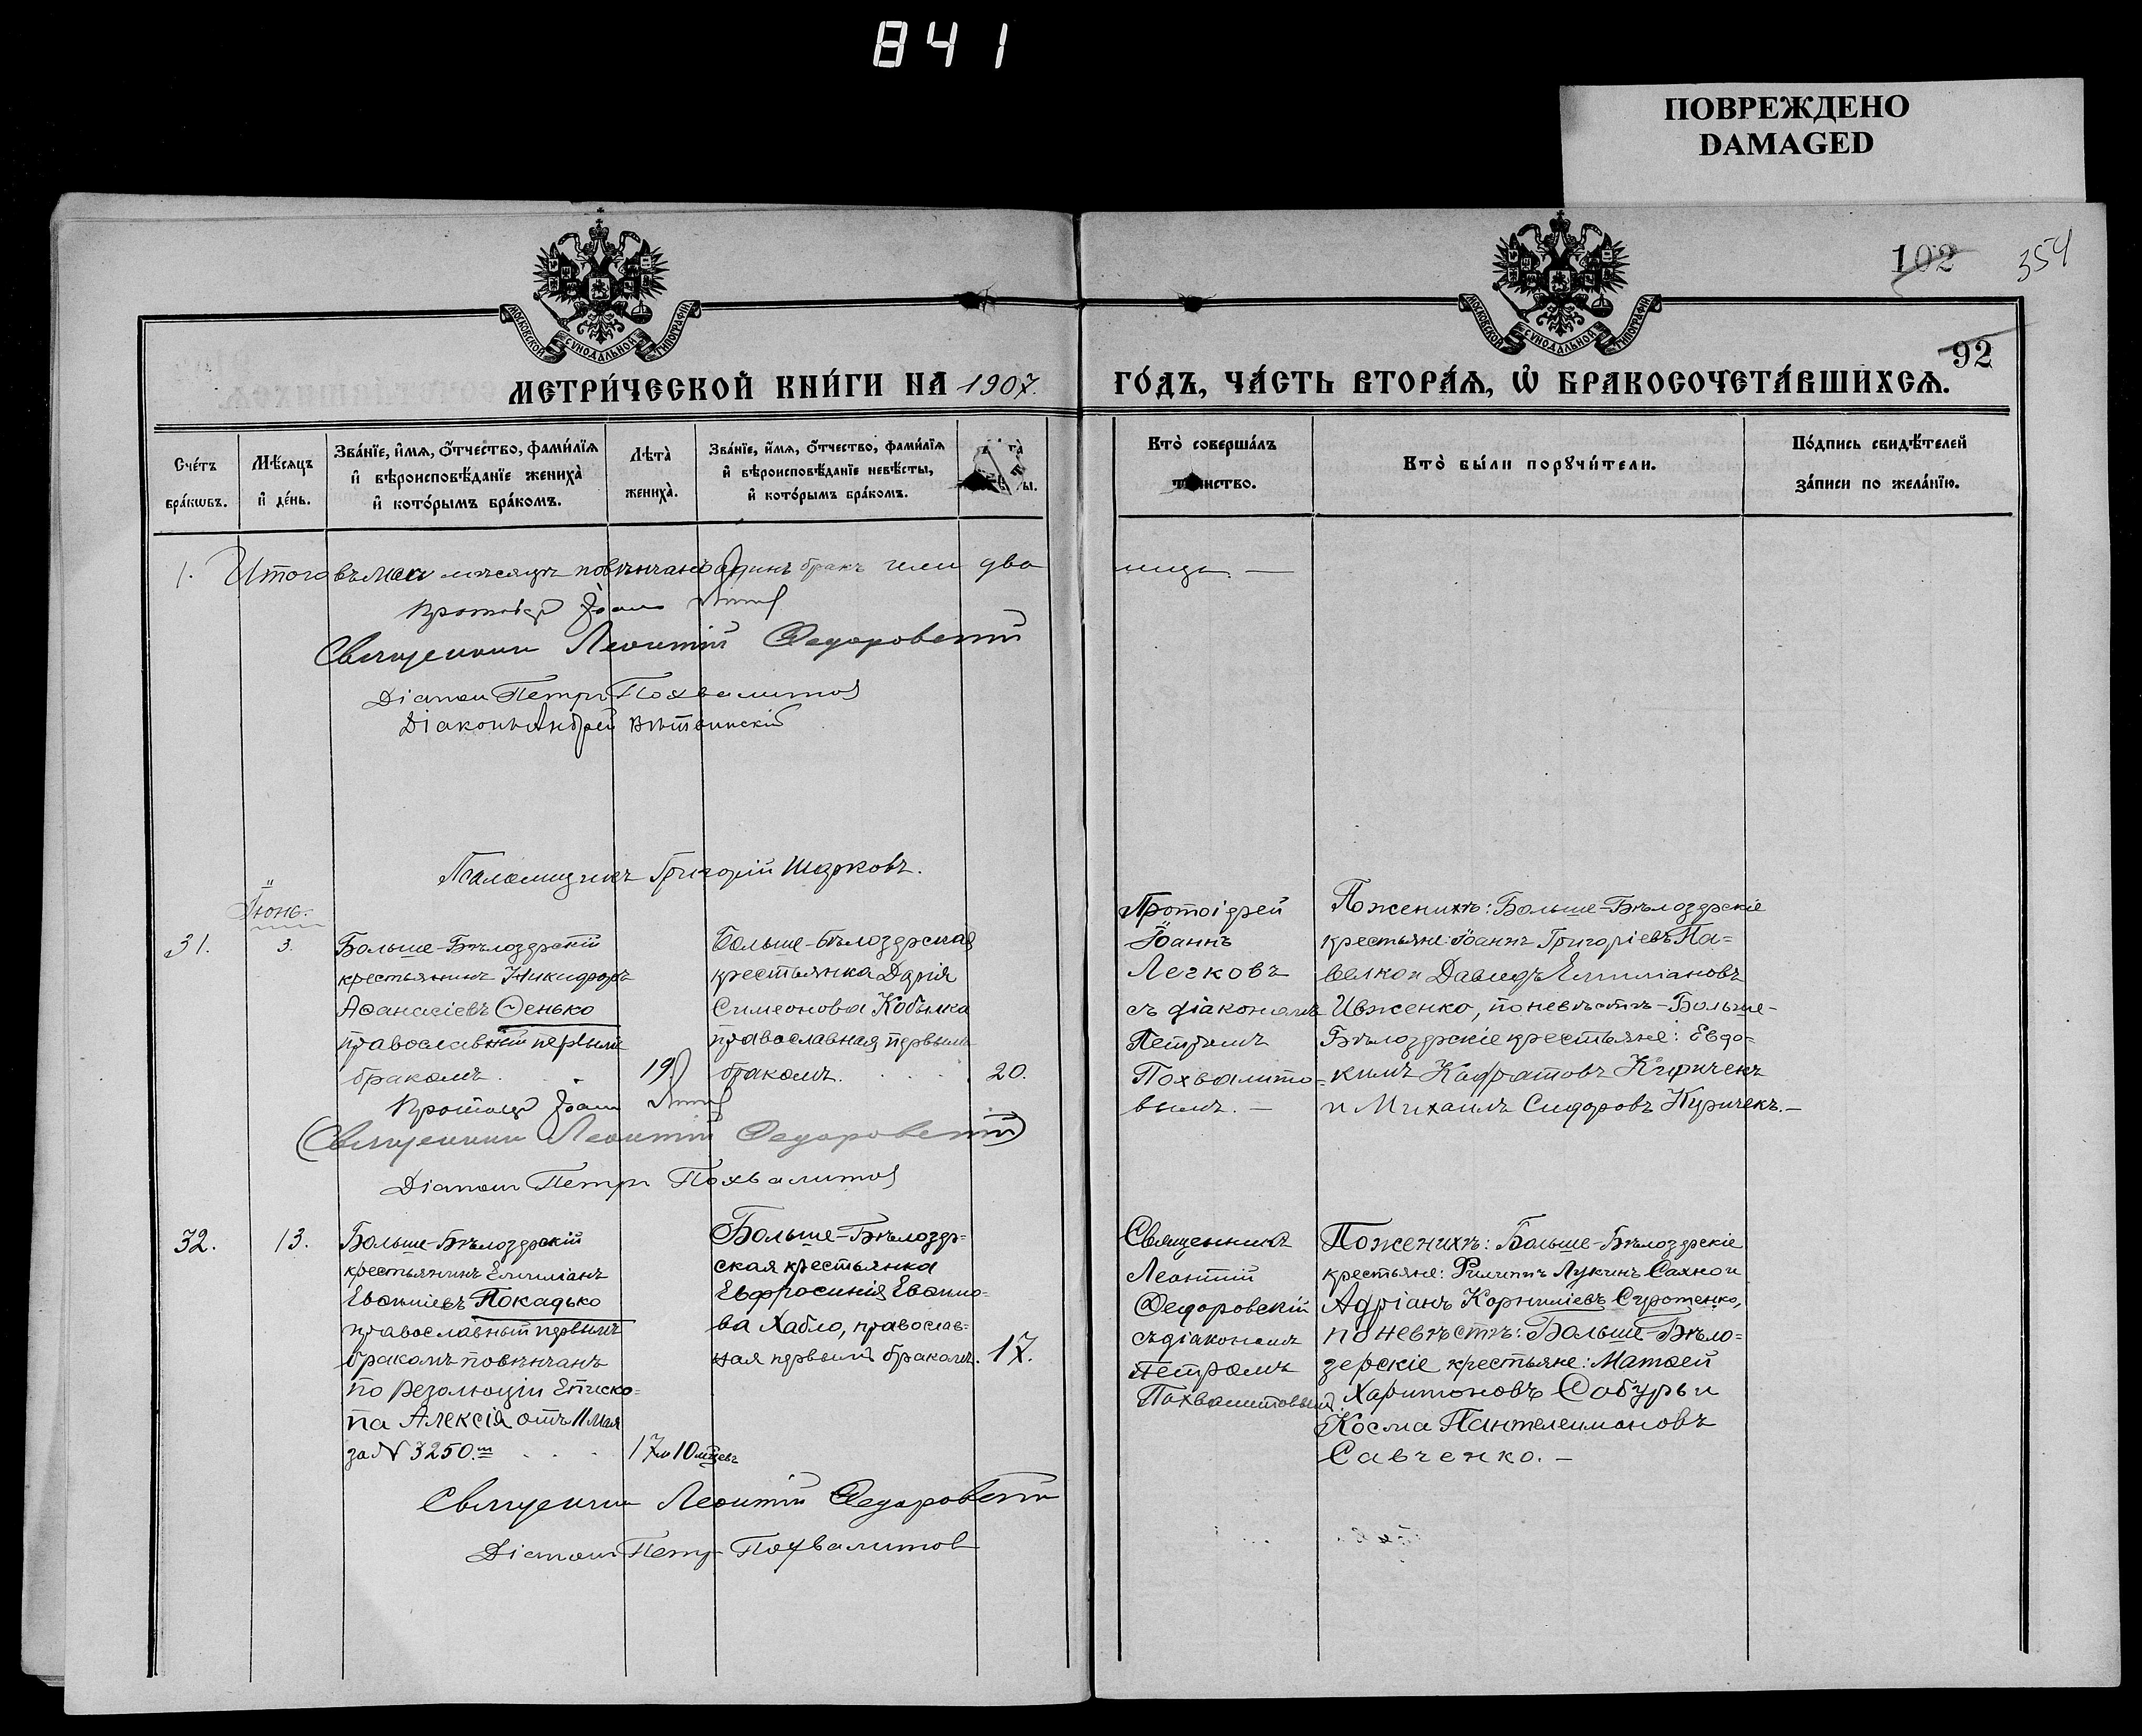 841
ПОВРЕЖДЕНО
DAMAGED
102
354
92
МОСКОВСКОЙ СѴНОДАЛЬНОЙ ТИПОГРАФІИ
МОСКОВСКОЙ СѴНОДАЛЬНОЙ ТИПОГРАФІИ
МЕТРИ́ЧЕСКОЙ КНИ́ГИ НА 1907.
ГО́ДЪ, ЧА́СТЬ ВТОРА́Ѧ, Ѽ БРАКОСОЧЕТА́ВШИХСѦ.
Сче́тъ
бра́кѡвъ.
Мѣ́сяцъ
и҆ де́нь.
Зва́нїе, и҆́мѧ, ѻ҆́тчество, фами́лїѧ
и҆ вѣроисповѣ́данїе жениха̀
и҆ кото́рымъ бра́комъ.
Лѣта̀
жениха̀.
Зва́нїе, и҆́мѧ, ѻ҆́тчество, фами́лїѧ
и҆ вѣроисповѣ́данїе невѣ́сты,
и҆ кото́рымъ бра́комъ.
Кто̀ соверша́лъ
та́инство.
Кто̀ бы́ли порꙋчи́тели.
По́дпись свидѣ́телей
за́писи по жела́нїю.
1. Итого въ Маѣ мѣсяцѣ повѣнчано одинъ бракъ или два лица. —
Протоіер Іоанн
Священник Леонтій Ѳедоровскій
Діакон Петръ Похвалитов
Діаконъ Андрей Вѣтвинскій
Псаломщикъ Григорій Шарковъ.
Іюнь.
31.
3.
Больше-Бѣлозерскій
крестьянинъ Никифоръ
Аѳанасіевъ Сенько
православный первымъ
бракомъ.
19
Больше-Бѣлозерская
крестьянка Дарія
Симеонова Кобылка
православная первымъ
бракомъ.
20.
Протоіерей
Іоаннъ
Легковъ
съ діакономъ
Петромъ
Похвалито-
вымъ. —
По женихѣ: Больше-Бѣлозерскіе
крестьяне: Іоаннъ Григоріевъ Па-
велко и Давидъ Емиліановъ
Ивженко, по невѣстѣ - Больше-
Бѣлозерскіе крестьяне: Евдо-
кимъ Кодратовъ Киричекъ
и Михаилъ Сидоровъ Киричекъ. —
Протоіер Іоанн
Священник Леонтій Ѳедоровскій
Діакон Петръ Похвалитов
32.
13.
Больше-Бѣлозерскій
крестьянинъ Емиліанъ
Евѳиміевъ Покадько
православный первымъ
бракомъ повѣнчанъ
по резолюціи Еписко-
па Алексія отъ 11 Мая
за № 3250.
17 л 10 мцевъ
Больше-Бѣлозер-
ская крестьянка
Евфросинія Евѳимо-
ва Хабло, православ-
ная первымъ бракомъ.
17.
Священникъ
Леонтій
Ѳедоровскій
съ діакономъ
Петромъ
Похвалитовымъ
По женихѣ: Больше-Бѣлозерскіе
крестьяне: Филиппъ Лукинъ Сахно и
Адріанъ Корниліевъ Сиротенко,
по невѣстѣ: Больше-Бѣло-
зерскіе крестьяне: Матѳей
Харитоновъ Сабуръ и
Косма Пантелеимоновъ
Савченко. —
Священник Леонтій Ѳедоровскій
Діакон Петр Похвалитов